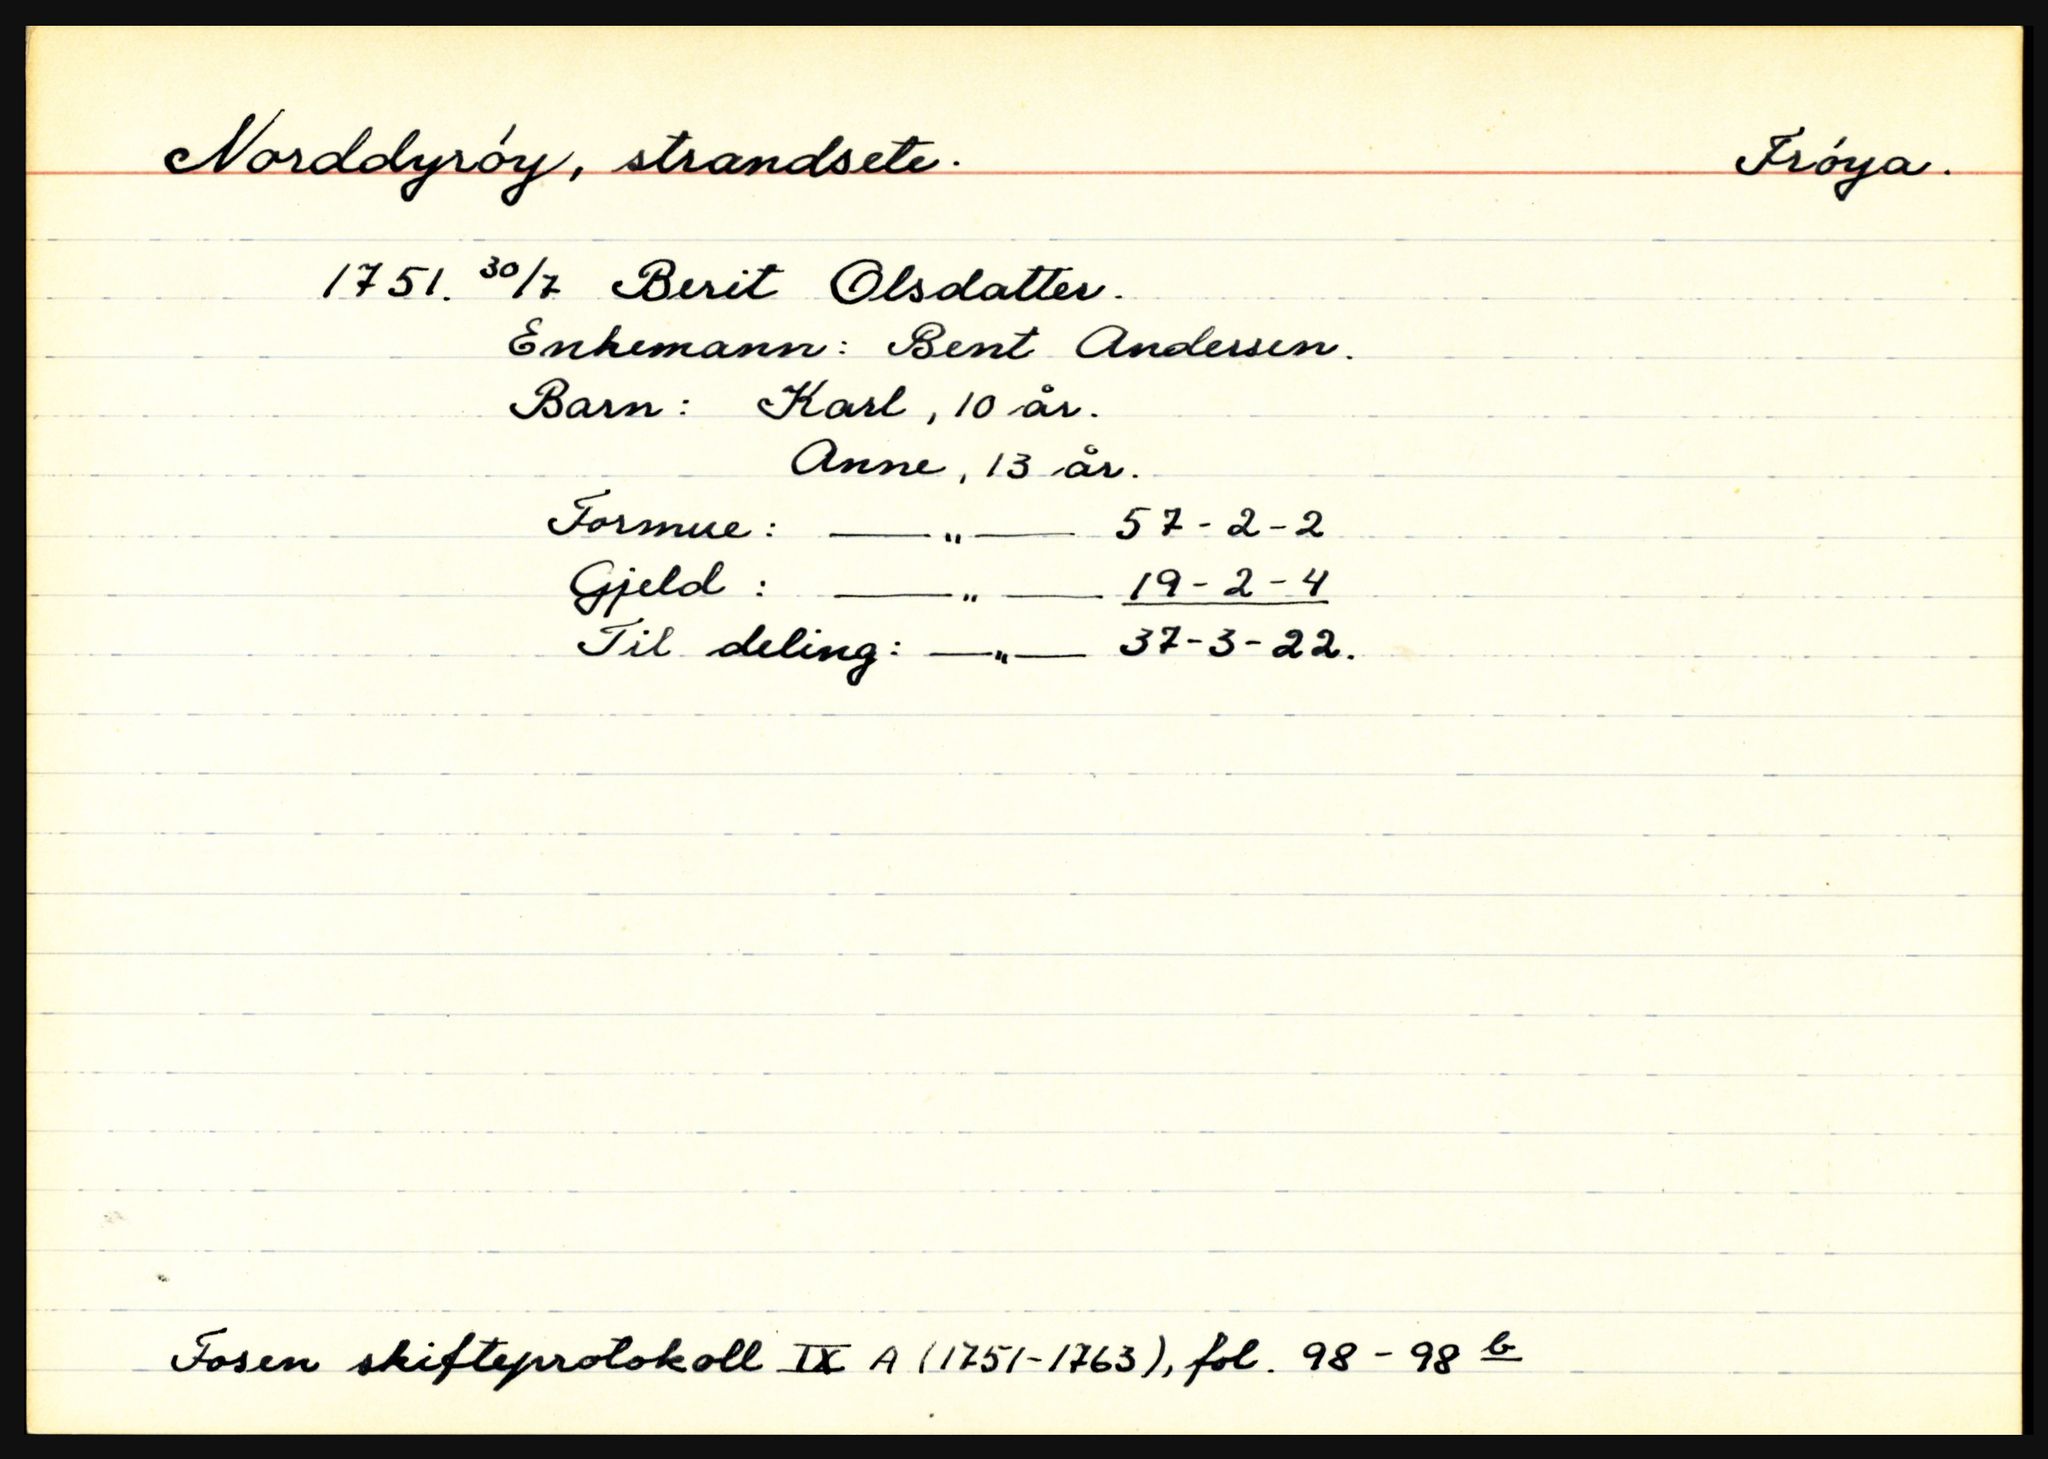 Norddyróy, strandsete. Fróya.
1751. 30/7 Berit Olsdatter.
Enkemann: Bent Andersen.
Barn: Karl, 10 år.
Anne, 13 år.
Formue: —„— 57-2-2
Gjeld: —„— 19-2-4
Til deling: —„— 37-3-22.
Fosen skifteprotokoll IX A (1751-1763), fol. 98-98 b